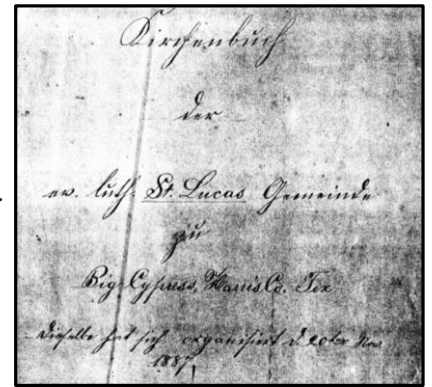 Kirchenbuch
der
ev. luth. St. Lucas Gemeinde
zu
Big Cypress, Harris Co. Tex
Dieselbe hat sich organisirt d. 20ter Nov
1887,